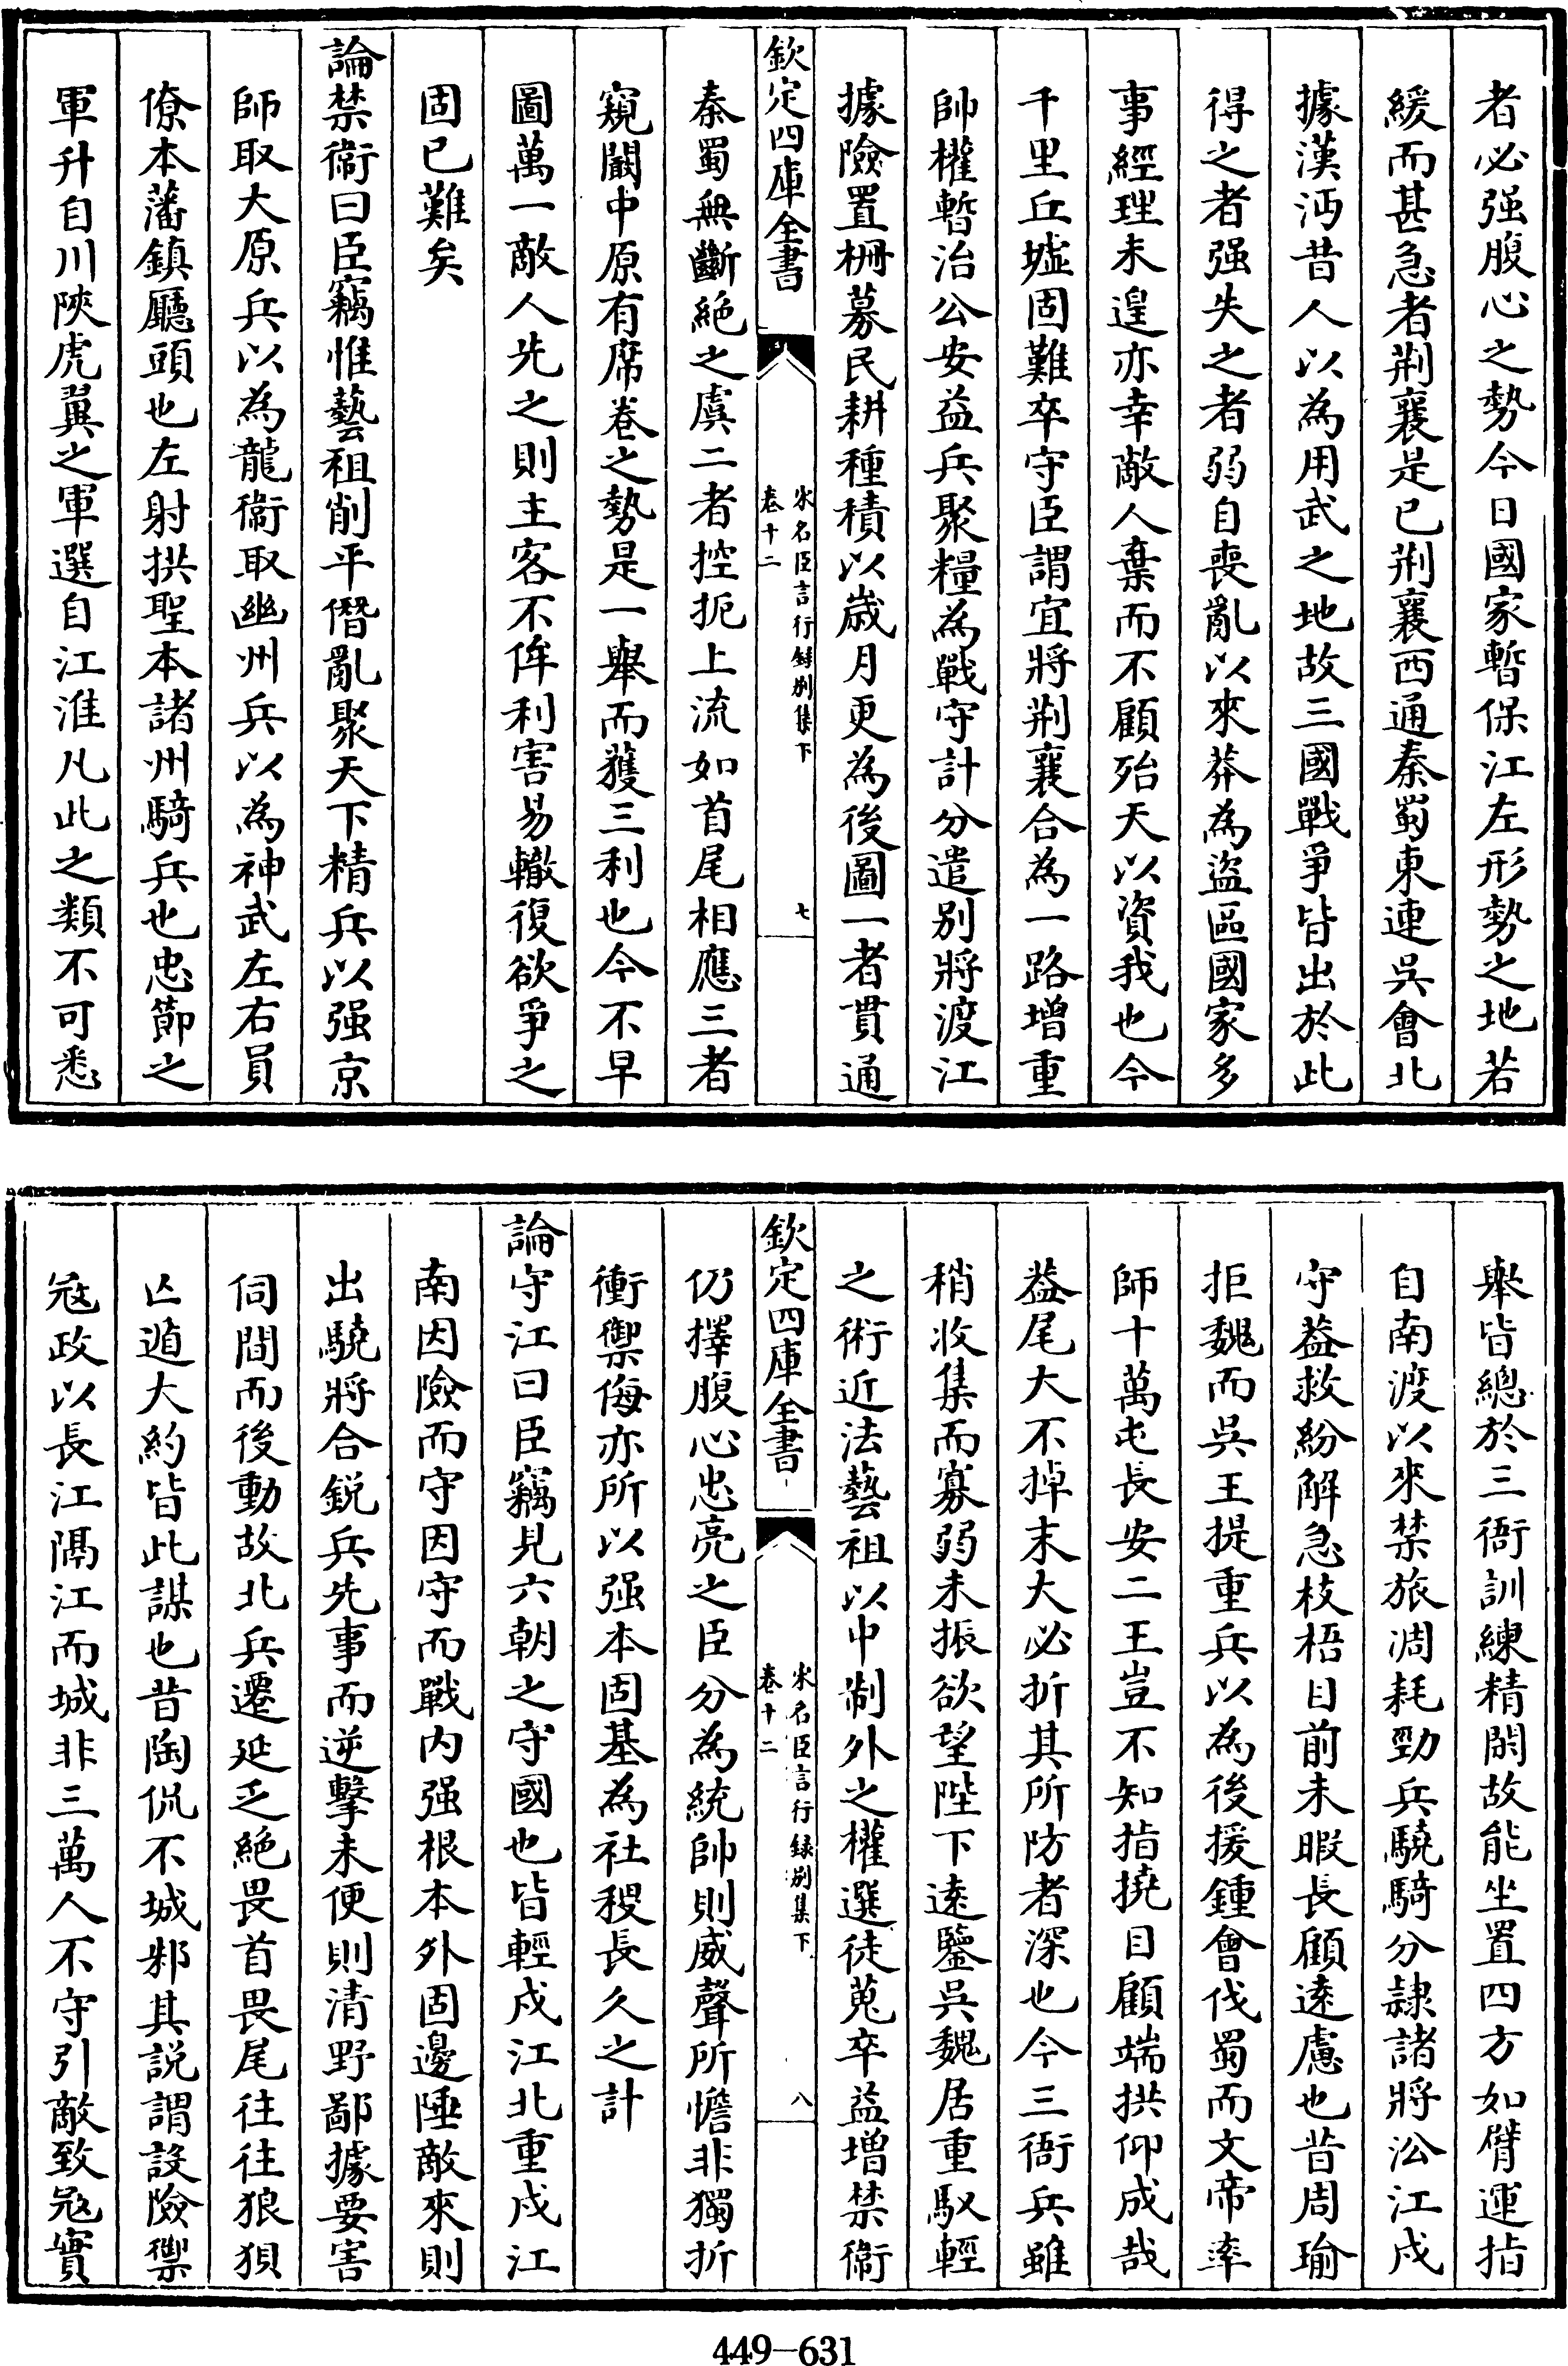 者必强腹心之勢今日國家暫保江左形勢之地若
緩而甚急者荆襄是已荆襄西通秦蜀東連吳會北
據漢沔昔人以為用武之地故三國戰爭皆出於此
得之者强失之者弱自喪亂以來莽為盜區國家多
事經理未遑亦幸敵人棄而不顧殆天以資我也今
千里丘墟固難卒守臣謂宜將荆襄合為一路增重
帥權暫治公安益兵聚糧為戰守計分遣别將渡江
據險置柵募民耕種積以歳月更為後圖一者貫通
欽定四庫全書
宋名臣言行録别集下
卷十二
七
秦蜀無斷絶之虞二者控扼上流如首尾相應三者
窺闞中原有席卷之勢是一舉而獲三利也今不早
圖萬一敵人先之則主客不侔利害易轍復欲爭之
固已難矣
論禁衞曰臣竊惟藝祖削平僭亂聚天下精兵以强京
師取大原兵以為龍衞取幽州兵以為神武左右員
僚本藩鎮廳頭也左射拱聖本諸州騎兵也忠節之
軍升自川陜虎翼之軍選自江淮凡此之類不可悉
舉皆總於三衙訓練精閑故能坐置四方如臂運指
自南渡以來禁旅凋耗勁兵驍騎分隷諸將沿江戍
守益救紛解急枝梧目前未暇長顧逺慮也昔周瑜
拒魏而吳王提重兵以為後援鍾會伐蜀而文帝率
師十萬屯長安二王豈不知指撓目顧端拱仰成哉
葢尾大不掉末大必折其所防者深也今三衙兵雖
稍收集而寡弱未振欲望陛下逺鑒吳魏居重馭輕
之術近法藝祖以中制外之權選徒蒐卒益增禁衞
欽定四庫全書
宋名臣言行録别集下
卷十二
八
仍擇腹心忠亮之臣分為統帥則威聲所憺非獨折
衝禦侮亦所以强本固基為社稷長久之計
論守江曰臣竊見六朝之守國也皆輕戍江北重戍江
南因險而守因守而戰内强根本外固邊陲敵來則
出驍將合鋭兵先事而逆擊未便則清野鄙據要害
伺間而後動故北兵遷延乏絶畏首畏尾往往狼狽
亡遁大約皆此謀也昔陶侃不城邾其説謂設險禦
冦政以長江隔江而城非三萬人不守引敵致冦實
449-631